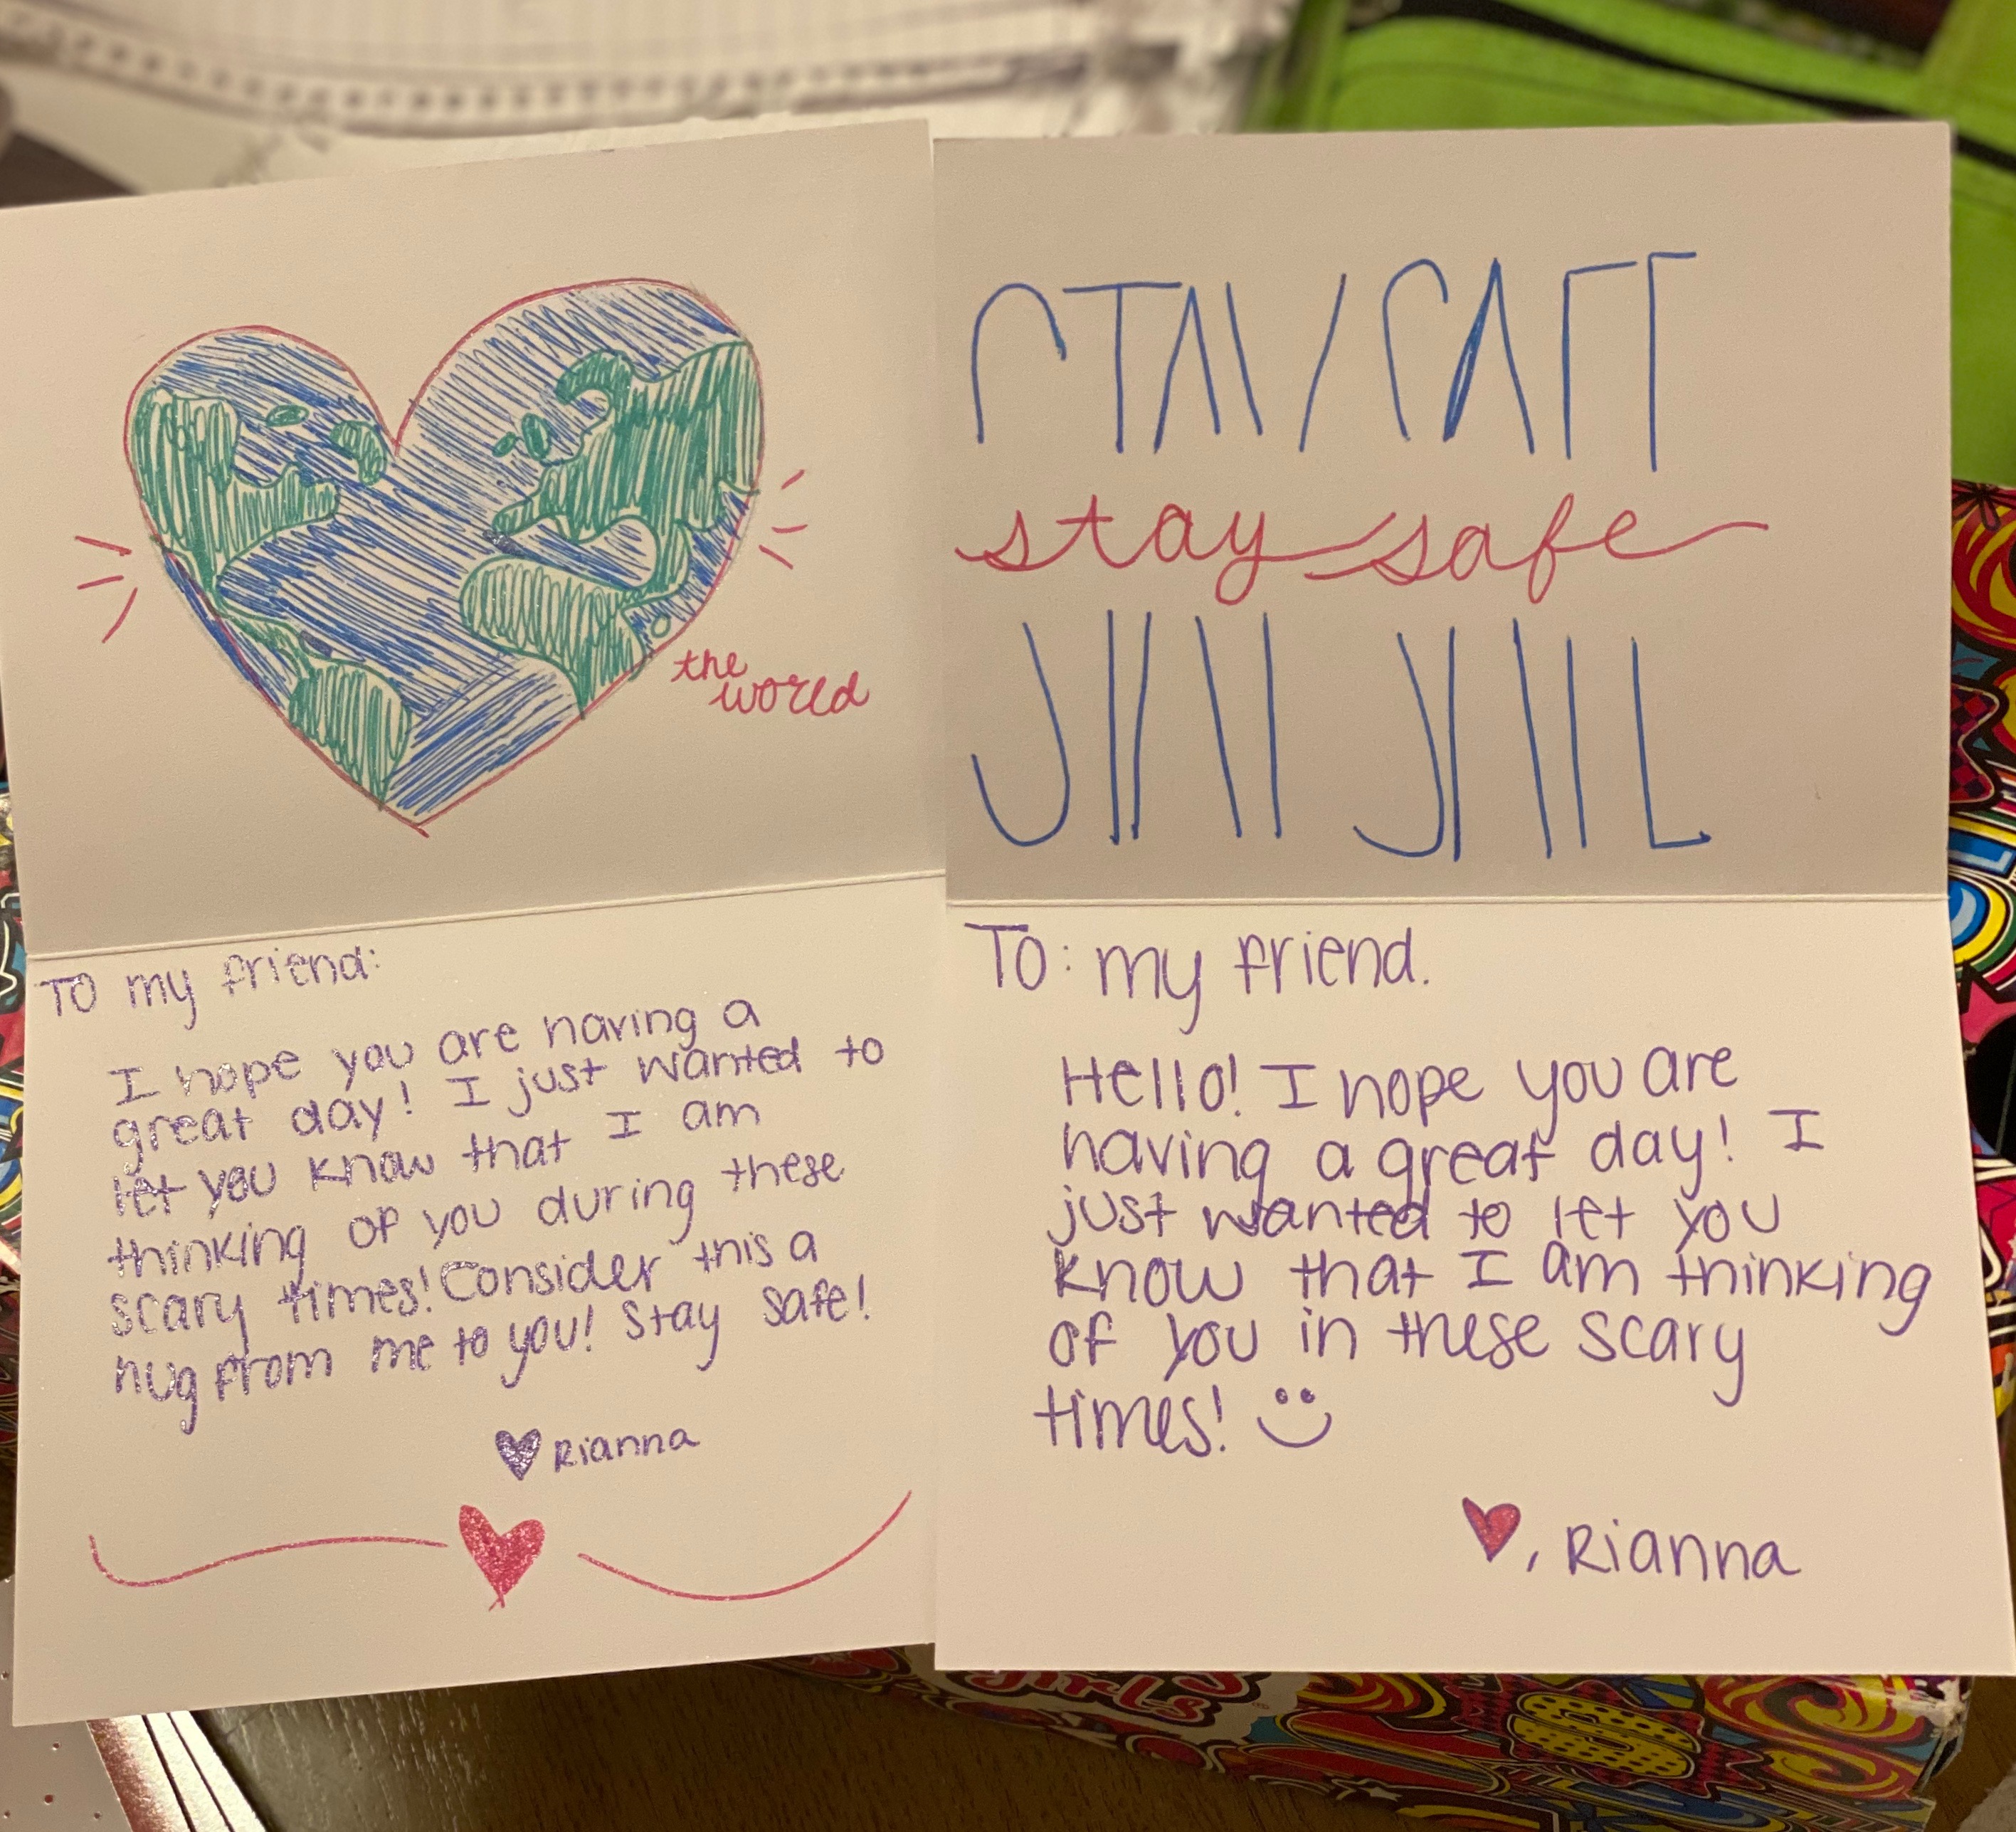 the
world
To my friend:
I hope you are having a
great day! I just wanted to
let you know that I am
thinking of you during these
scary times! Consider this a
hug from me to you! Stay safe!
Rianna
STAY SAFE
stay safe
To: my friend.
Hello! I hope you are
having a great day! I
just wanted to let you
know that I am thinking
of you in these scary
times!
, Rianna
girls